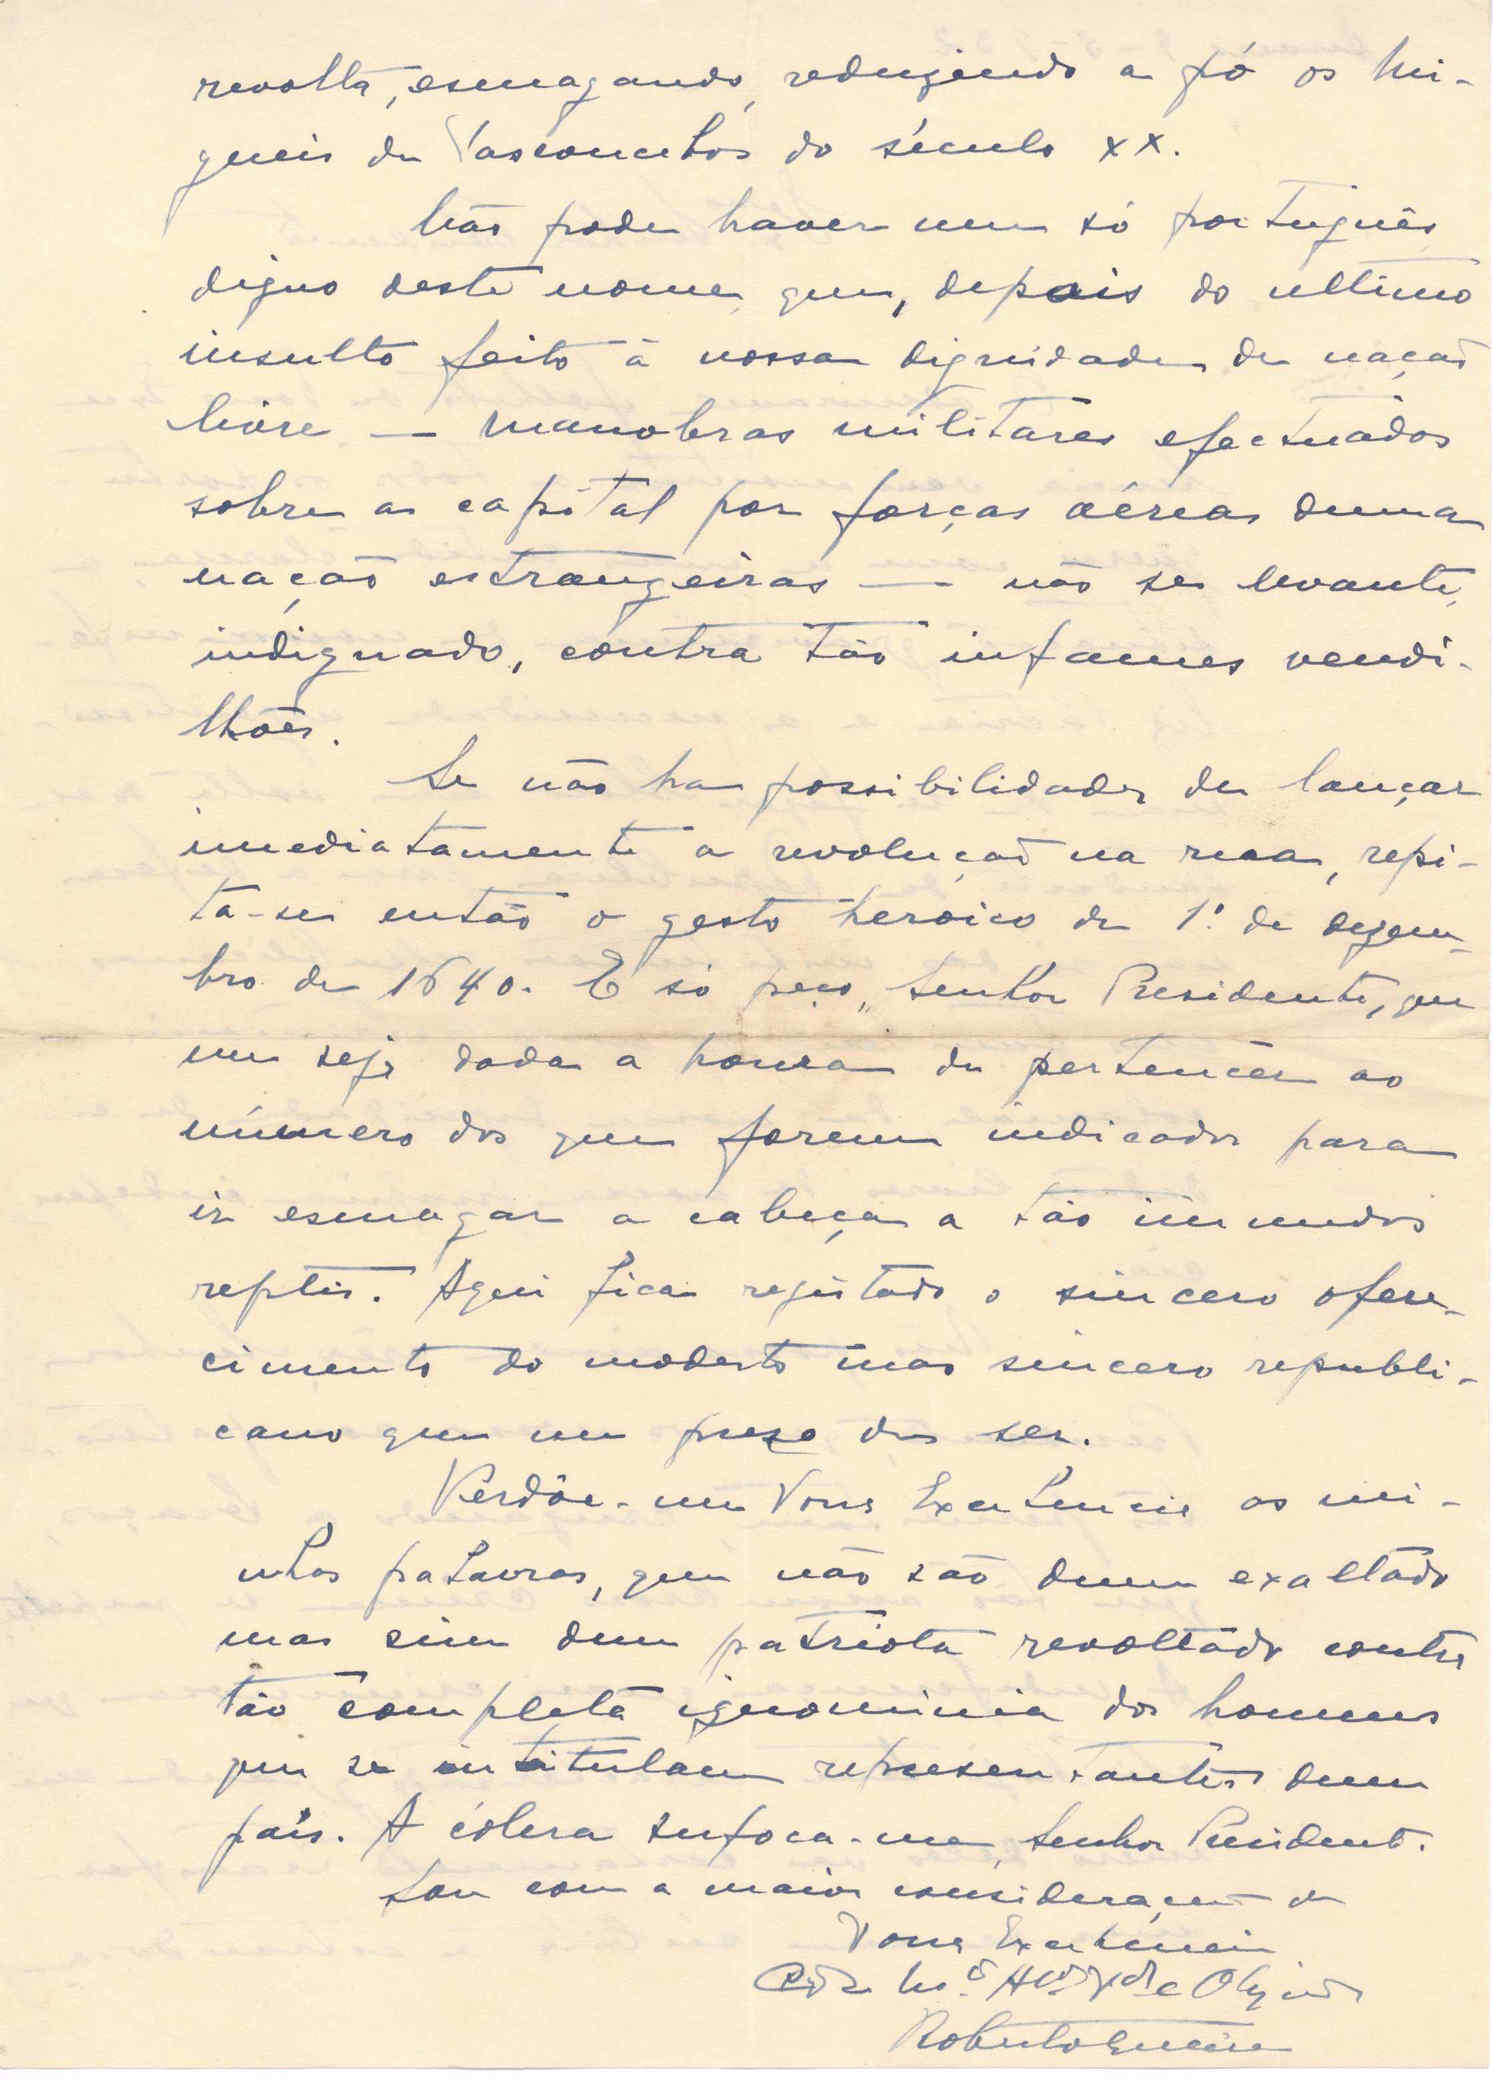 revolta, esmagando, reduzindo a pó os Mi-
gueis de Vasconcelos do século XX.
Não pode haver um só português,
digno deste nome, que, depois do ultimo
insulto feito à nossa dignidade de nação
livre — manobras militares efectuadas
sobre a capital por forças aéreas duma
nação estrangeiras — não se levante,
indignado, contra tão infames vendi-
lhões.
Se não ha possibilidades de lançar
imediatamente a revolução na rua, repi-
ta-se então o gesto heroico de 1.º de dezem-
bro de 1640. E só peço, Senhor Presidente, que
me seja dada a honra de pertencer ao
número dos que forem indicados para
ir esmagar a cabeça a tão imundos
reptis. Aqui fica registado o sincero ofere-
cimento do modesto mas sincero republi-
cano que me prezo de ser.
Perdôe-me Vossa Excelência as mi-
nhas palavras, que não são dum exaltado
mas sim dum patriota revoltado contra
tão completa ignominia dos homens
que se intitulam representantes dum
país. A cólera sufoca-me, Senhor Presidente.
Sou com a maior consideração de
Vossa Excelência
Roberto